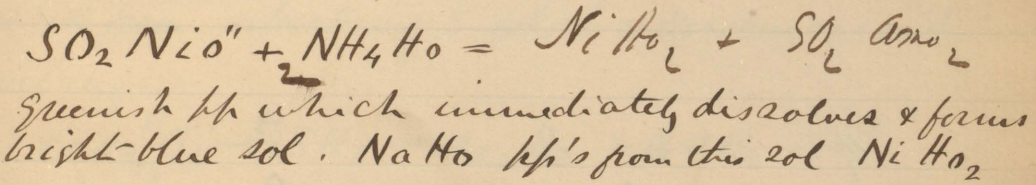 SO₂ Nio" + 2NH₄Ho = NiHo₂ + SO₂ Amo₂
greenish pp which immediately dissolves & forms
bright blue sol. NaHo pp's from this sol NiHo₂